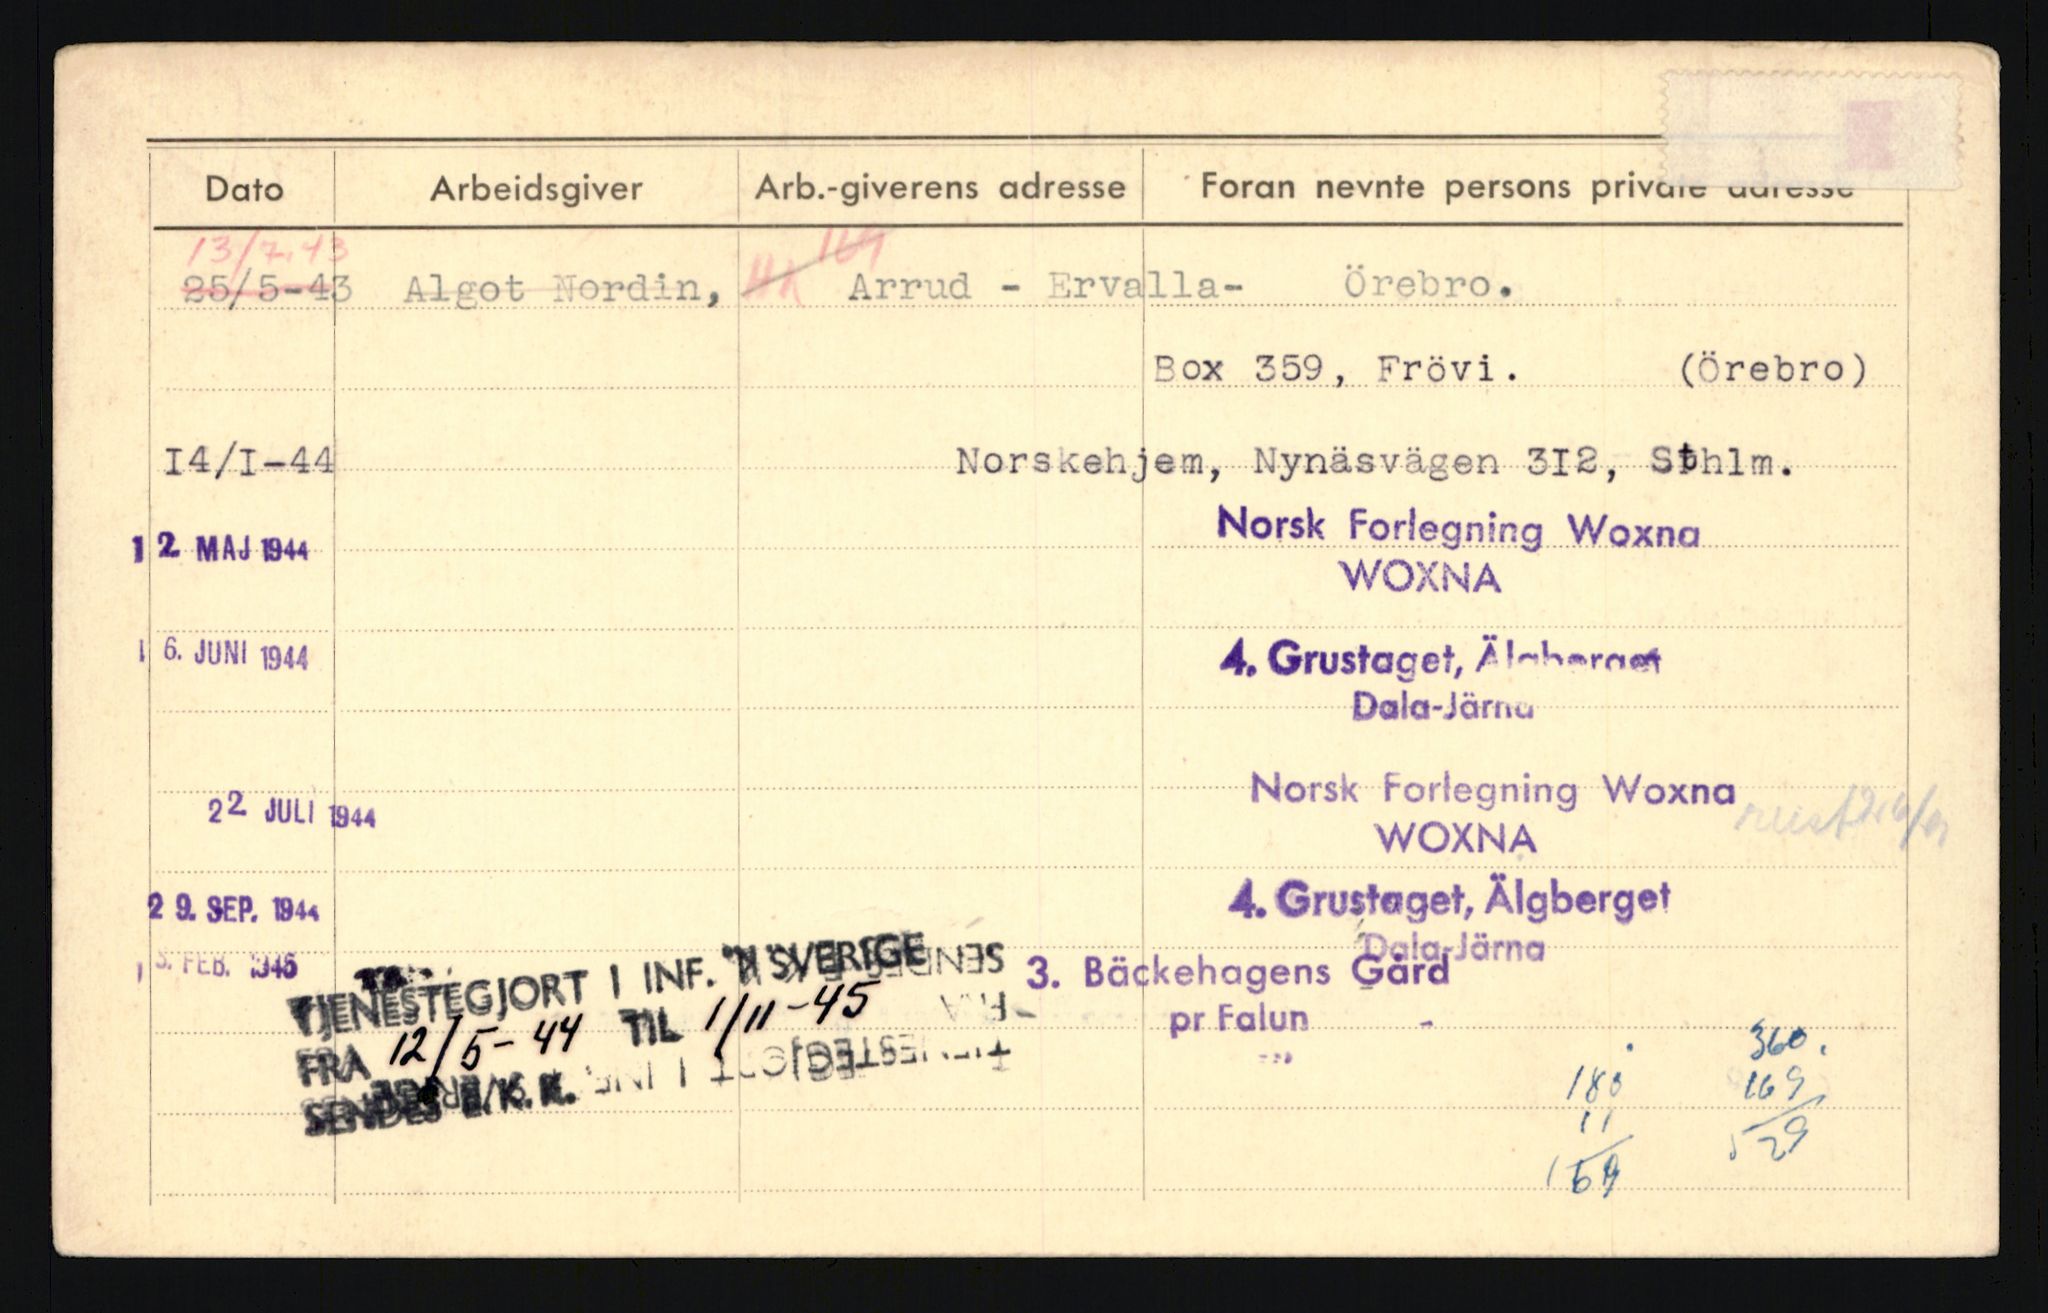 Dato Arbeidsgiver Arb.-giverens adresse Foran nevnte persons private adresse
13/7.43 169
25/5-43 Algot Nordin, Arrud - Ervalla- Örebro.
Box 359, Frövi. (Örebro)
I4/I-44 Norskehjem, Nynäsvägen 3I2, Sthlm.
12. MAJ 1944 Norsk Forlegning Woxna
WOXNA
16. JUNI 1944 4. Grustaget, Älgberget
Dala-Järna
22 JULI 1944 Norsk Forlegning Woxna
WOXNA
29. SEP. 1944 4. Grustaget, Älgberget
Dala-Järna
FEB. 1945 3. Bäckehagens Gård
pr Falun
TJENESTEGJORT I INF. I SVERIGE
FRA 12/5-44 TIL 1/11-45
SENDES E.K.K.
360.
180 169
11 529
169